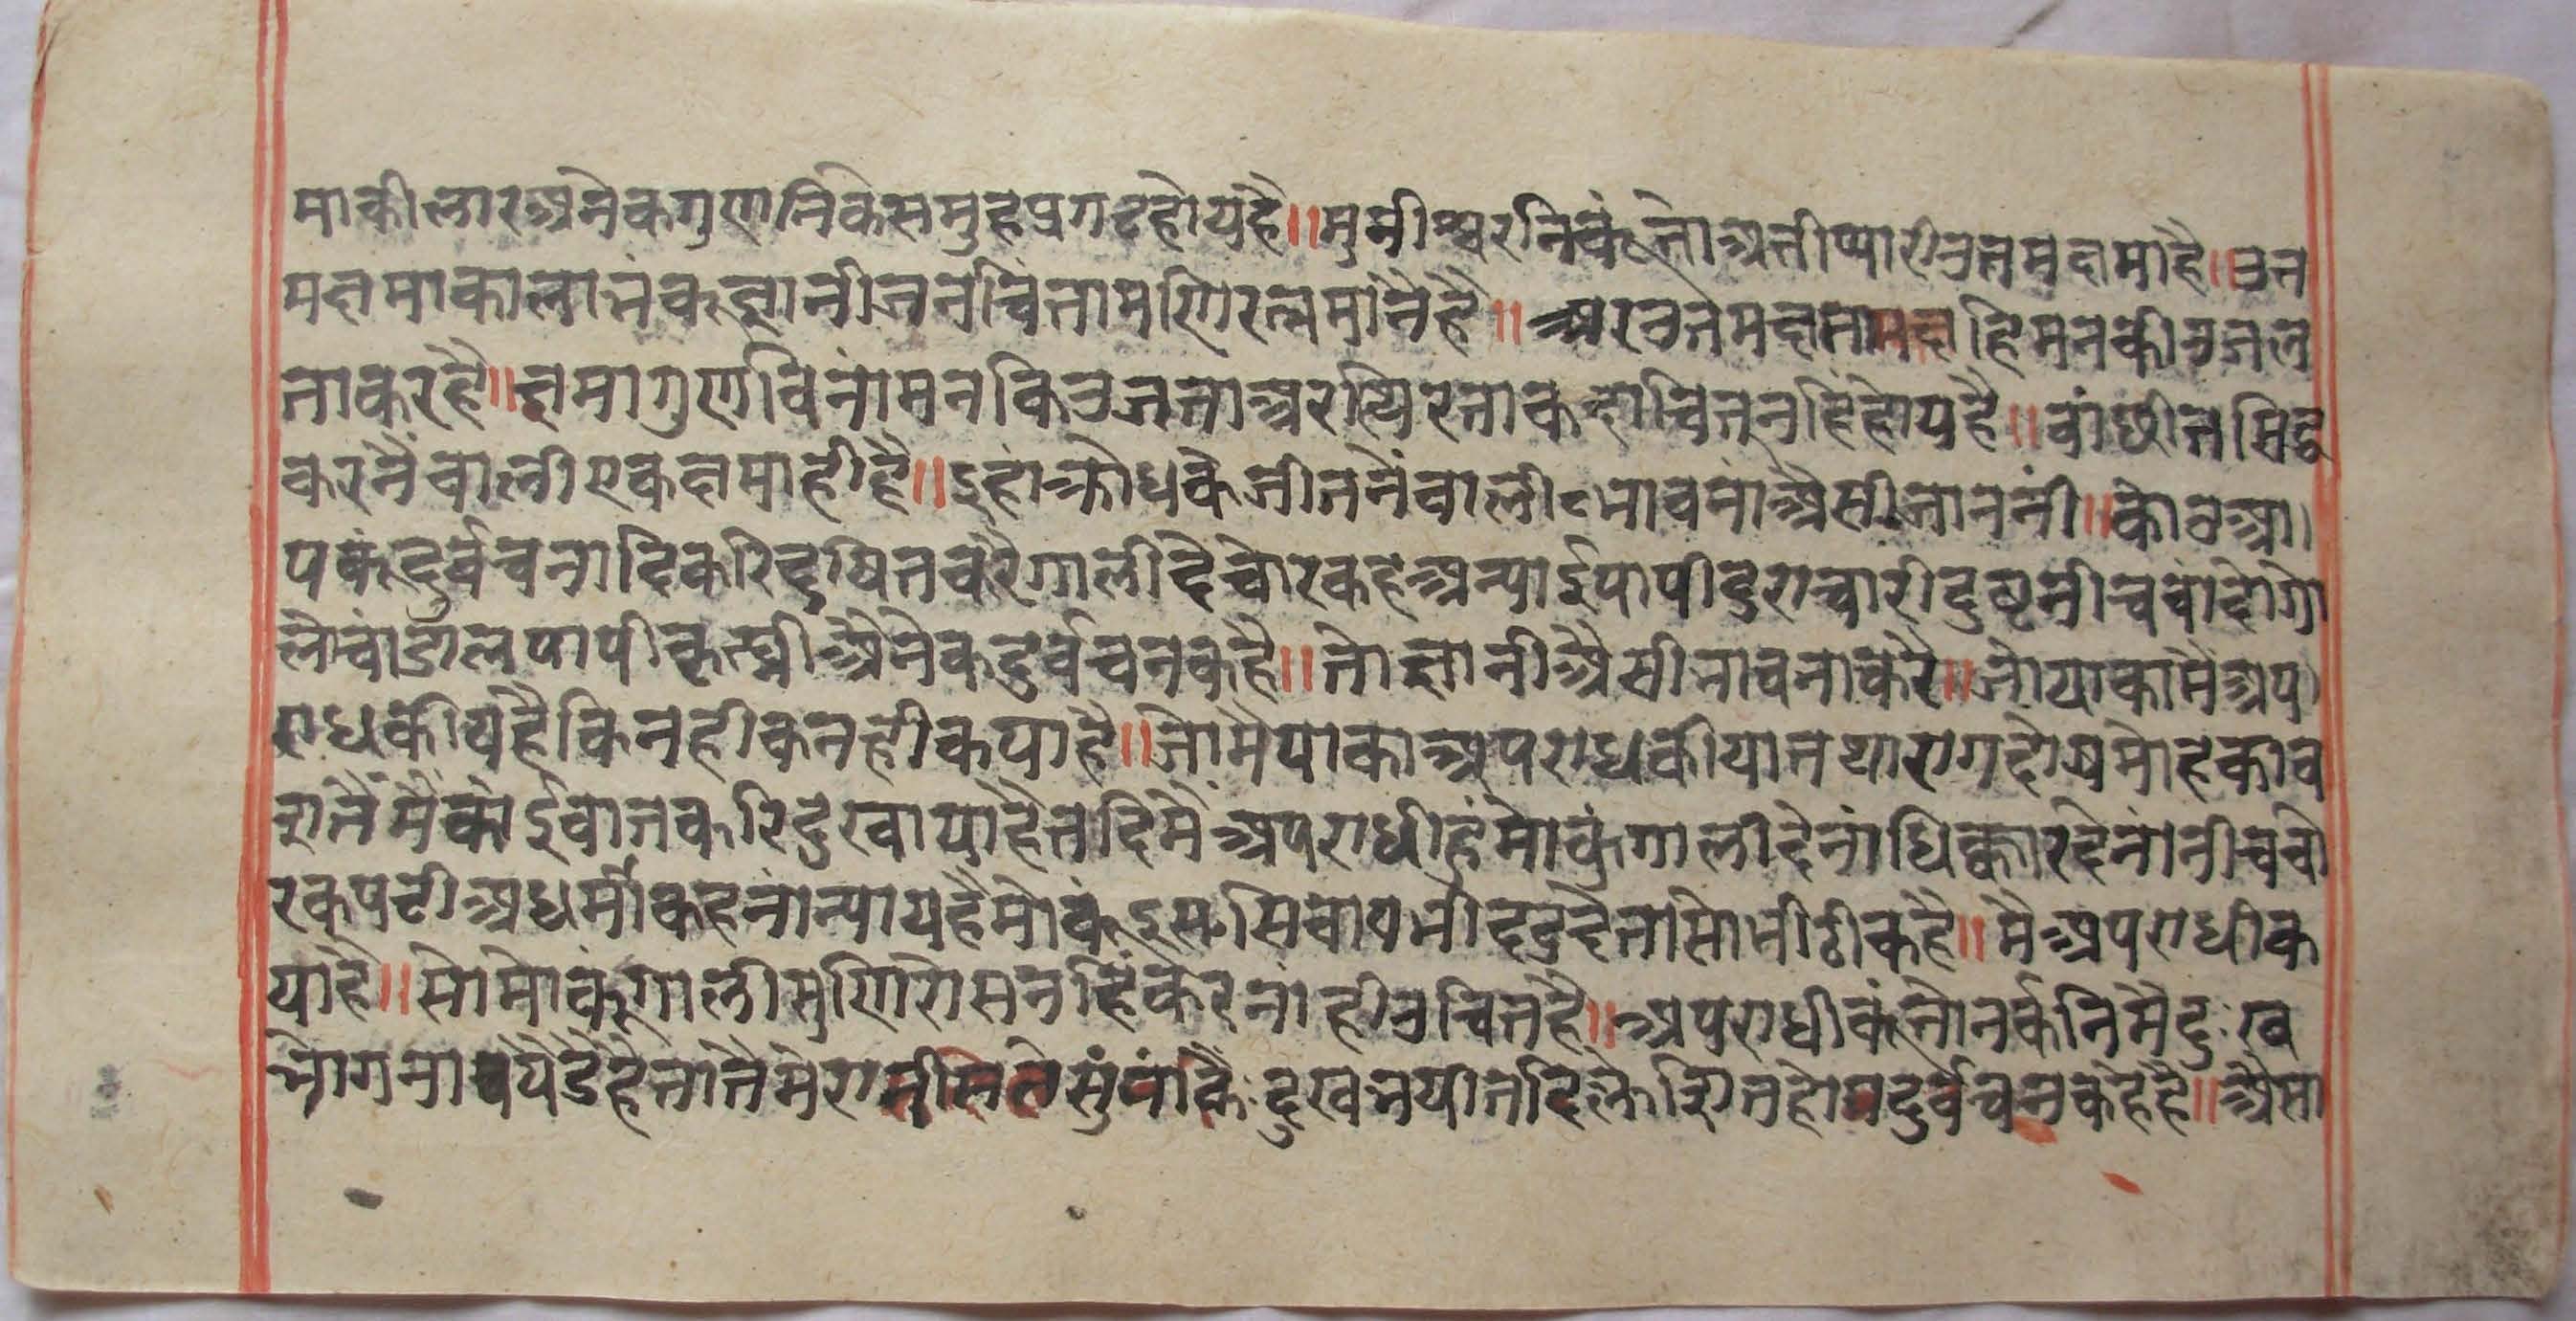 माकीलारअनेकगुणनिकेसमुहप्रगटहोयहै॥मुनीश्वरनिकूंतोअतीप्यारीउतमक्षमाहै॥उत
मक्षमाकालाभंकूज्ञानीजनचिंतामणिरत्नमांनैहै॥अरउतमक्षमाहिमनकीउजल
ताकरहै॥क्षमागुणविनांमनकिउजलताअरथिरताकदाचित्नहिंहोयहै॥वांछीतसिद्ध
करनैवालीएकक्षमाहीहै॥इहांक्रोधकेजीतनेंवालीभावनांअैसीजाननीं॥कोउआ।
पकूंदुर्वचनादिकरिदुषितकरैगालीदेचोरकहअन्याईपापीदुराचारीदुष्टनीचचांदोगो
लेचांडालपापीकृतघ्नीअनेकदुर्वचनकहै॥तोज्ञानीअैसीभावनाकरै॥जोयाकामैंअप
राधकीयहैकिनहीकनहीकयाहै॥जोमैयाकाअपराधकीयातथारागद्वेषमोहकाव
शतैंमैंकोईवातकरिदुखायाहैतदिमैंअपराधीहूंमोकुंगालीदेनांधिक्कारदेनांनीचचो
रकपटीअधर्मीकहनांन्यायहैमोकूंइससिवायभीदंडदेनासोभीठीकहै॥मैंअपराधीक
याहै॥सोमोकूंगालीसुणिरोसनहिंकरनांहीउचितहै॥अपराधीकूंतोनर्कनिमैदुःख
भोगनापडैहैतातैमेरानीमितसुंयांकैःदुखभयातदिक्लेशितहोयदुर्वचनकहेहै॥अैसा